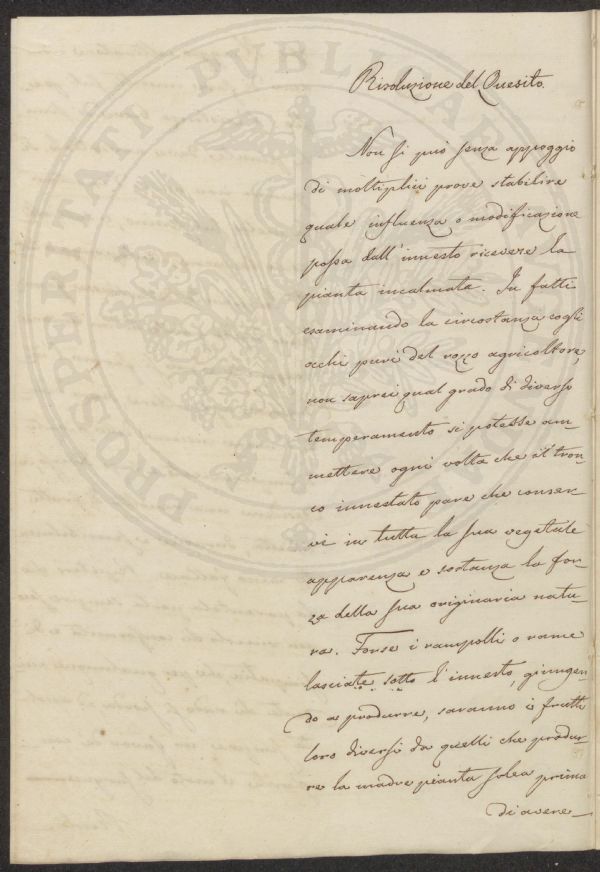 Risoluzione del Quesito.
Non si può senza appoggio
di moltiplici prove stabilire
quale influenza o modificazione
possa dall'innesto ricevere la
pianta incalmata. In fatti
esaminando la circostanza cogli
occhi puri del rozzo agricoltore,
non saprei qual grado di diverso
temperamento si potesse am-
mettere ogni volta che il tron-
co innestato pare che conser-
vi in tutta la sua vegetale
apparenza e sostanza la for-
za della sua originaria natu-
ra. Forse i rampolli o rame
lasciate sotto l'innesto, giungen-
do a produrre, saranno i frutti
loro diversi da quelli che produr-
re la madre pianta solea prima
di avere
PROSPERITATI PVBLICAE